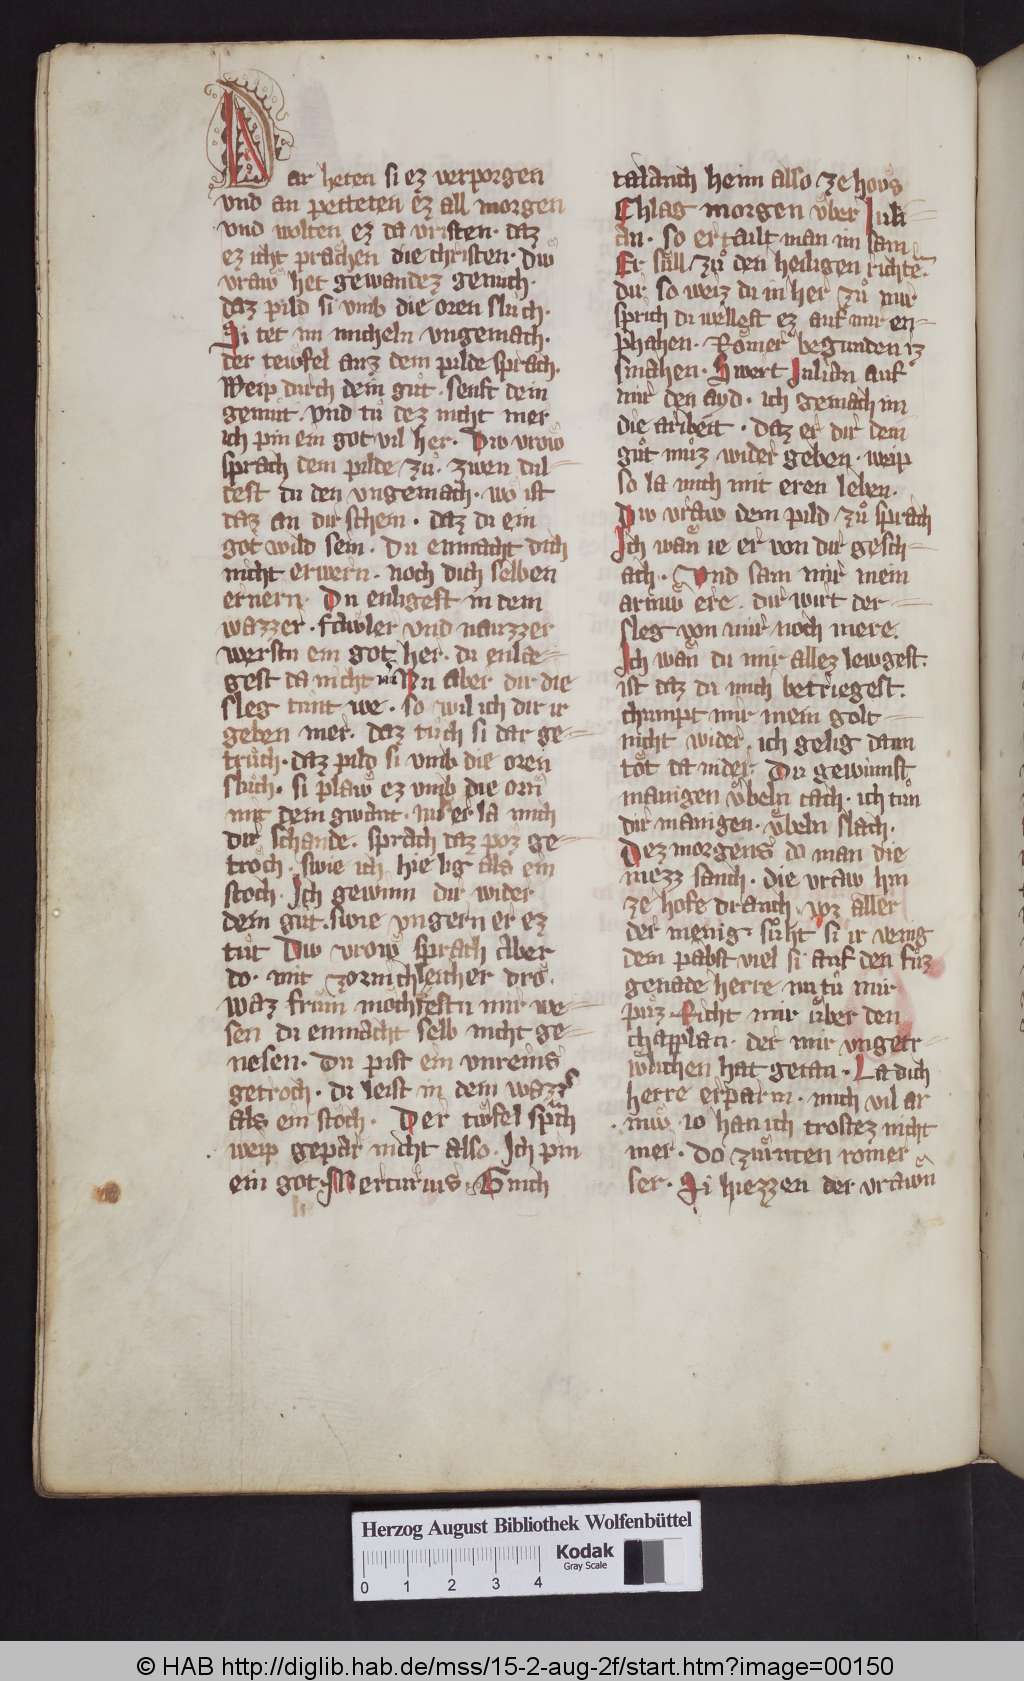 Dar heten si ez verporgen
vnd an petteten ez all morgen
vnd wolten ez da vristen · daz
ez icht prachen die christen · Diw
vraw het gewandez genuch ·
daz pild si vmb die oren sluch ·
Si tet im micheln vngemach ·
der tewfel auz dem pilde sprach ·
Weip durch dein gůt · senft dein
gemut · vnd tů dez nicht mer
ich pin ein got vil her · Diw vrow
sprach dem pilde zů · zweu dul-
test du den vngemach · wo ist
daz an dir schein · daz du ein
got wild sein · Du enmacht dich
nicht erwern · noch dich selben
ernern · Du enligest in dem
wazzer · fawler vnd nazzer
werstu ein got her · du enlae-
gest da nicht Nu aber dir die
sleg tunt we · so wil ich dir ir
geben mer · daz tůch si dar ge-
trůch · daz pild si vmb die oren
slůch · si plaw ez vmb die orn
mit dem gwant · er la mich
dir schande · sprach daz poz ge-
troch · swie ich hie lig als ein
stoch · Ich gewinn dir wider
dein gut · swie vngern er ez
tůt Diw vrow sprach aber
do · mit zornichleicher dro ·
waz frum mochtestu mir we-
sen du enmacht selb nicht ge-
nesen · Du pist ein vnreins
getroch · du leist in dem wazzer
als ein stoch · Der tiwfel sprach
weip gepar nicht also · Ich pin
ein got · Mercurius · Genich
talanch heim also ze hous
Chlag morgen vber Juli-
an · so ertailt man im sam
Er sull zů den heiligen richten
dir so weiz du in her zů mir
sprich du wellest ez auf mir en-
phahen · Romer begunden iz
smahen · Swert Julian auf
mir den ayd · ich gemach im
die aribeit · daz er dir dem
gůt můz wider geben · weip
so la mich mit eren leben ·
Diw vraw dem pild zů sprach
Ich wan ie er von dir gesch-
ach · Vnd sam mir mein
armiw ere · dir wirt der
sleg von mir noch mere ·
Ich wan du mir allez lewgest ·
ist daz du mich betriegest ·
chumpt mir mein golt
nicht wider · ich gelig dann
tot da nider · Du gewinnst
manigen vbeln tach · ich tun
dir manigen · vbeln slach ·
Dez morgens do man die
mezz sanch · die vraw hin
ze hofe dranch · voz aller
der menig · sůht si ir venig
dem pabst viel si auf den fůz
genade herre nu tů mir
půz · Richt mir vber den
chapplan · der mir vngetr-
wlichen hat getan · La dich
herre erparm · mich vil ar
miw · io han ich trostez nicht
mer · Do zurnten romer
ser · Si hiezzen der vrawn
Herzog August Bibliothek Wolfenbüttel
0 1 2 3 4
Kodak
Gray Scale
© HAB http://diglib.hab.de/mss/15-2-aug-2f/start.htm?image=00150